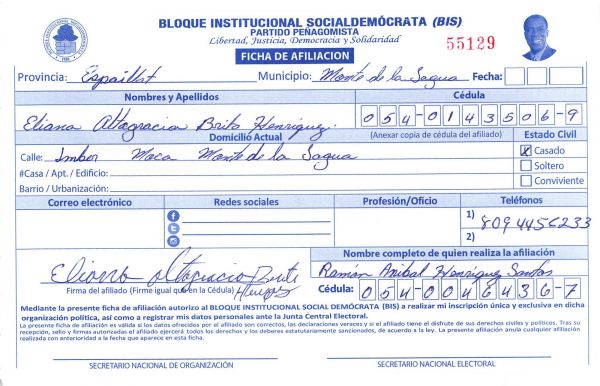 BLOQUE INSTITUCIONAL SOCIALDEMÓCRATA (BIS)
PARTIDO PEÑAGOMISTA
Libertad, Justicia, Democracia y Solidaridad
FICHA DE AFILIACION
55129
Provincia: Espaillat Municipio: Monte de la Jagua Fecha:
Nombres y Apellidos Cédula
Eliana Altagracia Brito Henríquez 054-0143506-9
Domicilio Actual (Anexar copia de cédula del afiliado) Estado Civil
Calle: Imber Moca Monte de la Jagua X Casado
#Casa / Apt. / Edificio: Soltero
Barrio / Urbanización: Conviviente
Correo electrónico Redes sociales Profesión/Oficio Teléfonos
1) 809 4456233
2)
Nombre completo de quien realiza la afiliación
Eliana Altagracia Ramón Anibal Henriquez Santos
Firma del afiliado (Firme igual que en la Cédula) Cédula: 054-0046436-7
Mediante la presente ficha de afiliación autorizo al BLOQUE INSTITUCIONAL SOCIAL DEMÓCRATA (BIS) a realizar mi inscripción única y exclusiva en dicha
organización política, así como a registrar mis datos personales ante la Junta Central Electoral.
La presente ficha de afiliación es válida si los datos ofrecidos por el afiliado son correctos, las declaraciones veraces y si el afiliado tiene el disfrute de sus derechos civiles y políticos. Tras su
recepción, sello y firmas autorizadas el afiliado ejercerá todos los derechos y los deberes estatutariamente sancionados, de acuerdo a la ley. La presente afiliación anula cualquier afiliación
realizada con anterioridad a la fecha que aparece en esta ficha.
SECRETARIO NACIONAL DE ORGANIZACIÓN SECRETARIO NACIONAL ELECTORAL